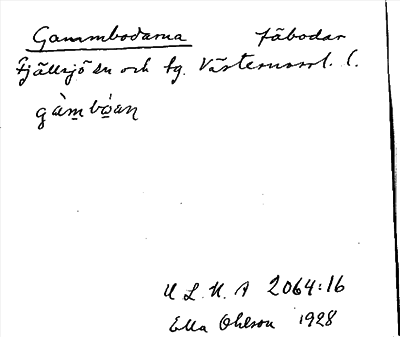 Gammbodarna fäbodar
Fjällsjö sn och tg. Västernorrl. l.
gàmbóan
U L M A 2064:16
Ella Ohlson 1928